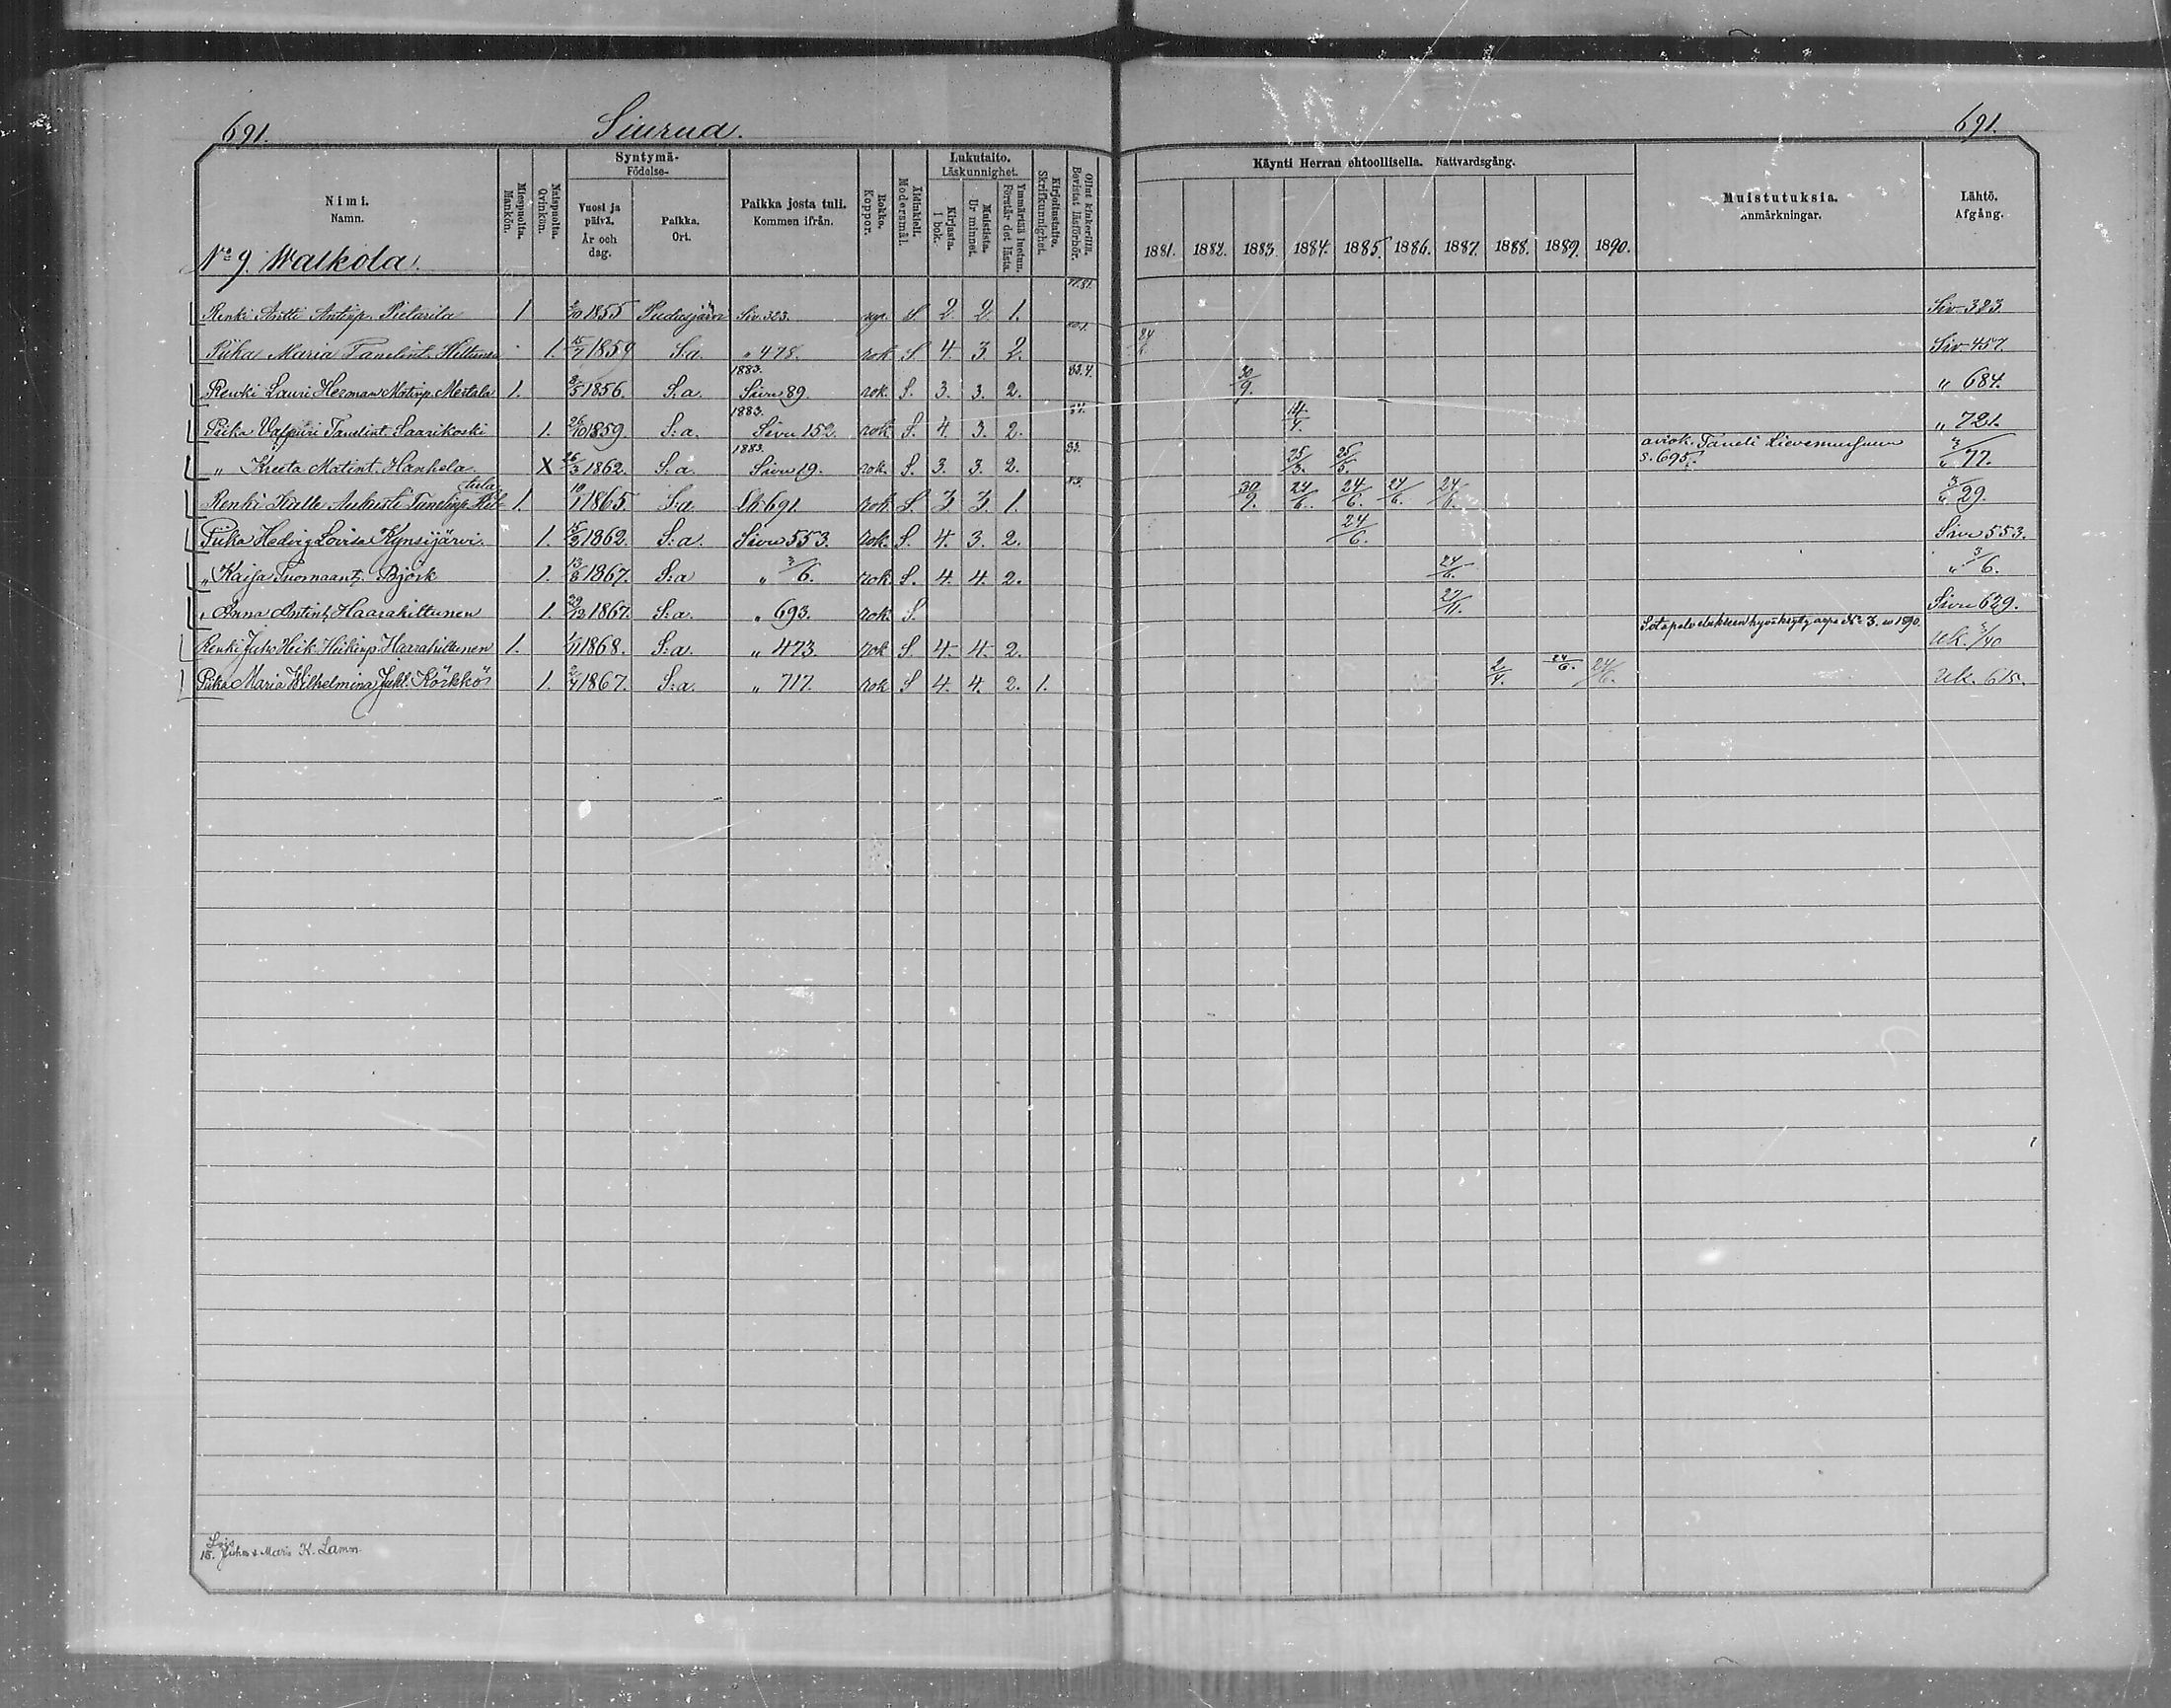 691. Siurua. 691.
Nimi. Namn.
Miespuolta. Mankön.
Naispuolta. Qvinkön.
Syntymä- Födelse-
Vuosi ja päivä. År och dag.
Paikka. Ort.
Paikka josta tuli. Kommen ifrån.
Rokko. Koppor.
Äidinkieli. Modersmål.
Lukutaito. Läskunnighet.
Kirjasta. I bok.
Muistista. Ur minnet.
Ymmärtää luetun. Förstår det lästa.
Kirjoitustaito. Skrifkunnighet.
Ollut kinkerillä. Bevistat läsförhör.
Käynti Herran ehtoollisella. Nattvardsgång.
1881. 1882. 1883. 1884. 1885. 1886. 1887. 1888. 1889. 1890.
Muistutuksia. Anmärkningar.
Lähtö. Afgång.
No 9. Walkola.
Renki Antti Antinp. Pietarila 1 1855 Pudasjärvi Siv. 323. S. 2. 2. 1. Siv 323.
Piika Maria Tanelint. Hiltunen 1. 15/7 1859 S:a. " 478. rok S. 4. 3. 2. 24/ Siv 457.
Renki Lauri Herman Matinp. Mertala 1. 3/5 1856. S:a. 1883. Sivu 89. rok. S. 3. 3. 2. 83.4. 30/9. " 684.
Piika Valpuri Tanelint. Saarikoski 1. 26/10 1859. S:a. 1883. Sivu 152. rok. S. 4. 3. 2. 14/4. " 721.
" Kreeta Matint. Hanhela. X 26/3 1862. S:a. 1883. Sivu 19. rok. S. 3. 3. 2. 83. 25/3. 25/5. aviok. Taneli s. 695. 77.
Renki Kalle Aukusti Tanelinp. 1. 10/1 1865. S:a. Uk 691. rok. S. 3 3. 1. 30/9. 24/6. 24/6. 24/6. 24/6. 29.
Piika Hedvig Lovisa Kynsijärvi. 1. 15/2 1862. S:a. Sivu 553. Rok. S. 4. 3. 2. 24/6. Sivu 553.
" Kaisa Tuomaant. Björk 1. 13/8 1867. S:a " 3/6. rok S. 4. 4. 2. 24/6. " 3/6.
" Anna Antint. Haarahiltunen 1. 29/12 1867. S:a. " 693. rok. S. 27/11. Sivu 629.
Renki Juho Heik Heikinp. Haarahiltunen 1. 1/11 1868. S:a. " 473. rok S. 4. 4. 2. Sotapalvelukseen hyväksytty arpa No 3. w 1890. Uk. 3/40
Piika Maria Wilhelmina Juhl. Körkkö 1. 2/7 1867. S:a. " 717. rok S 4. 4. 2. 1. 2/4. 24/6. 24/6. Uk. 615.
15. Juho & Maria K. Lamm.